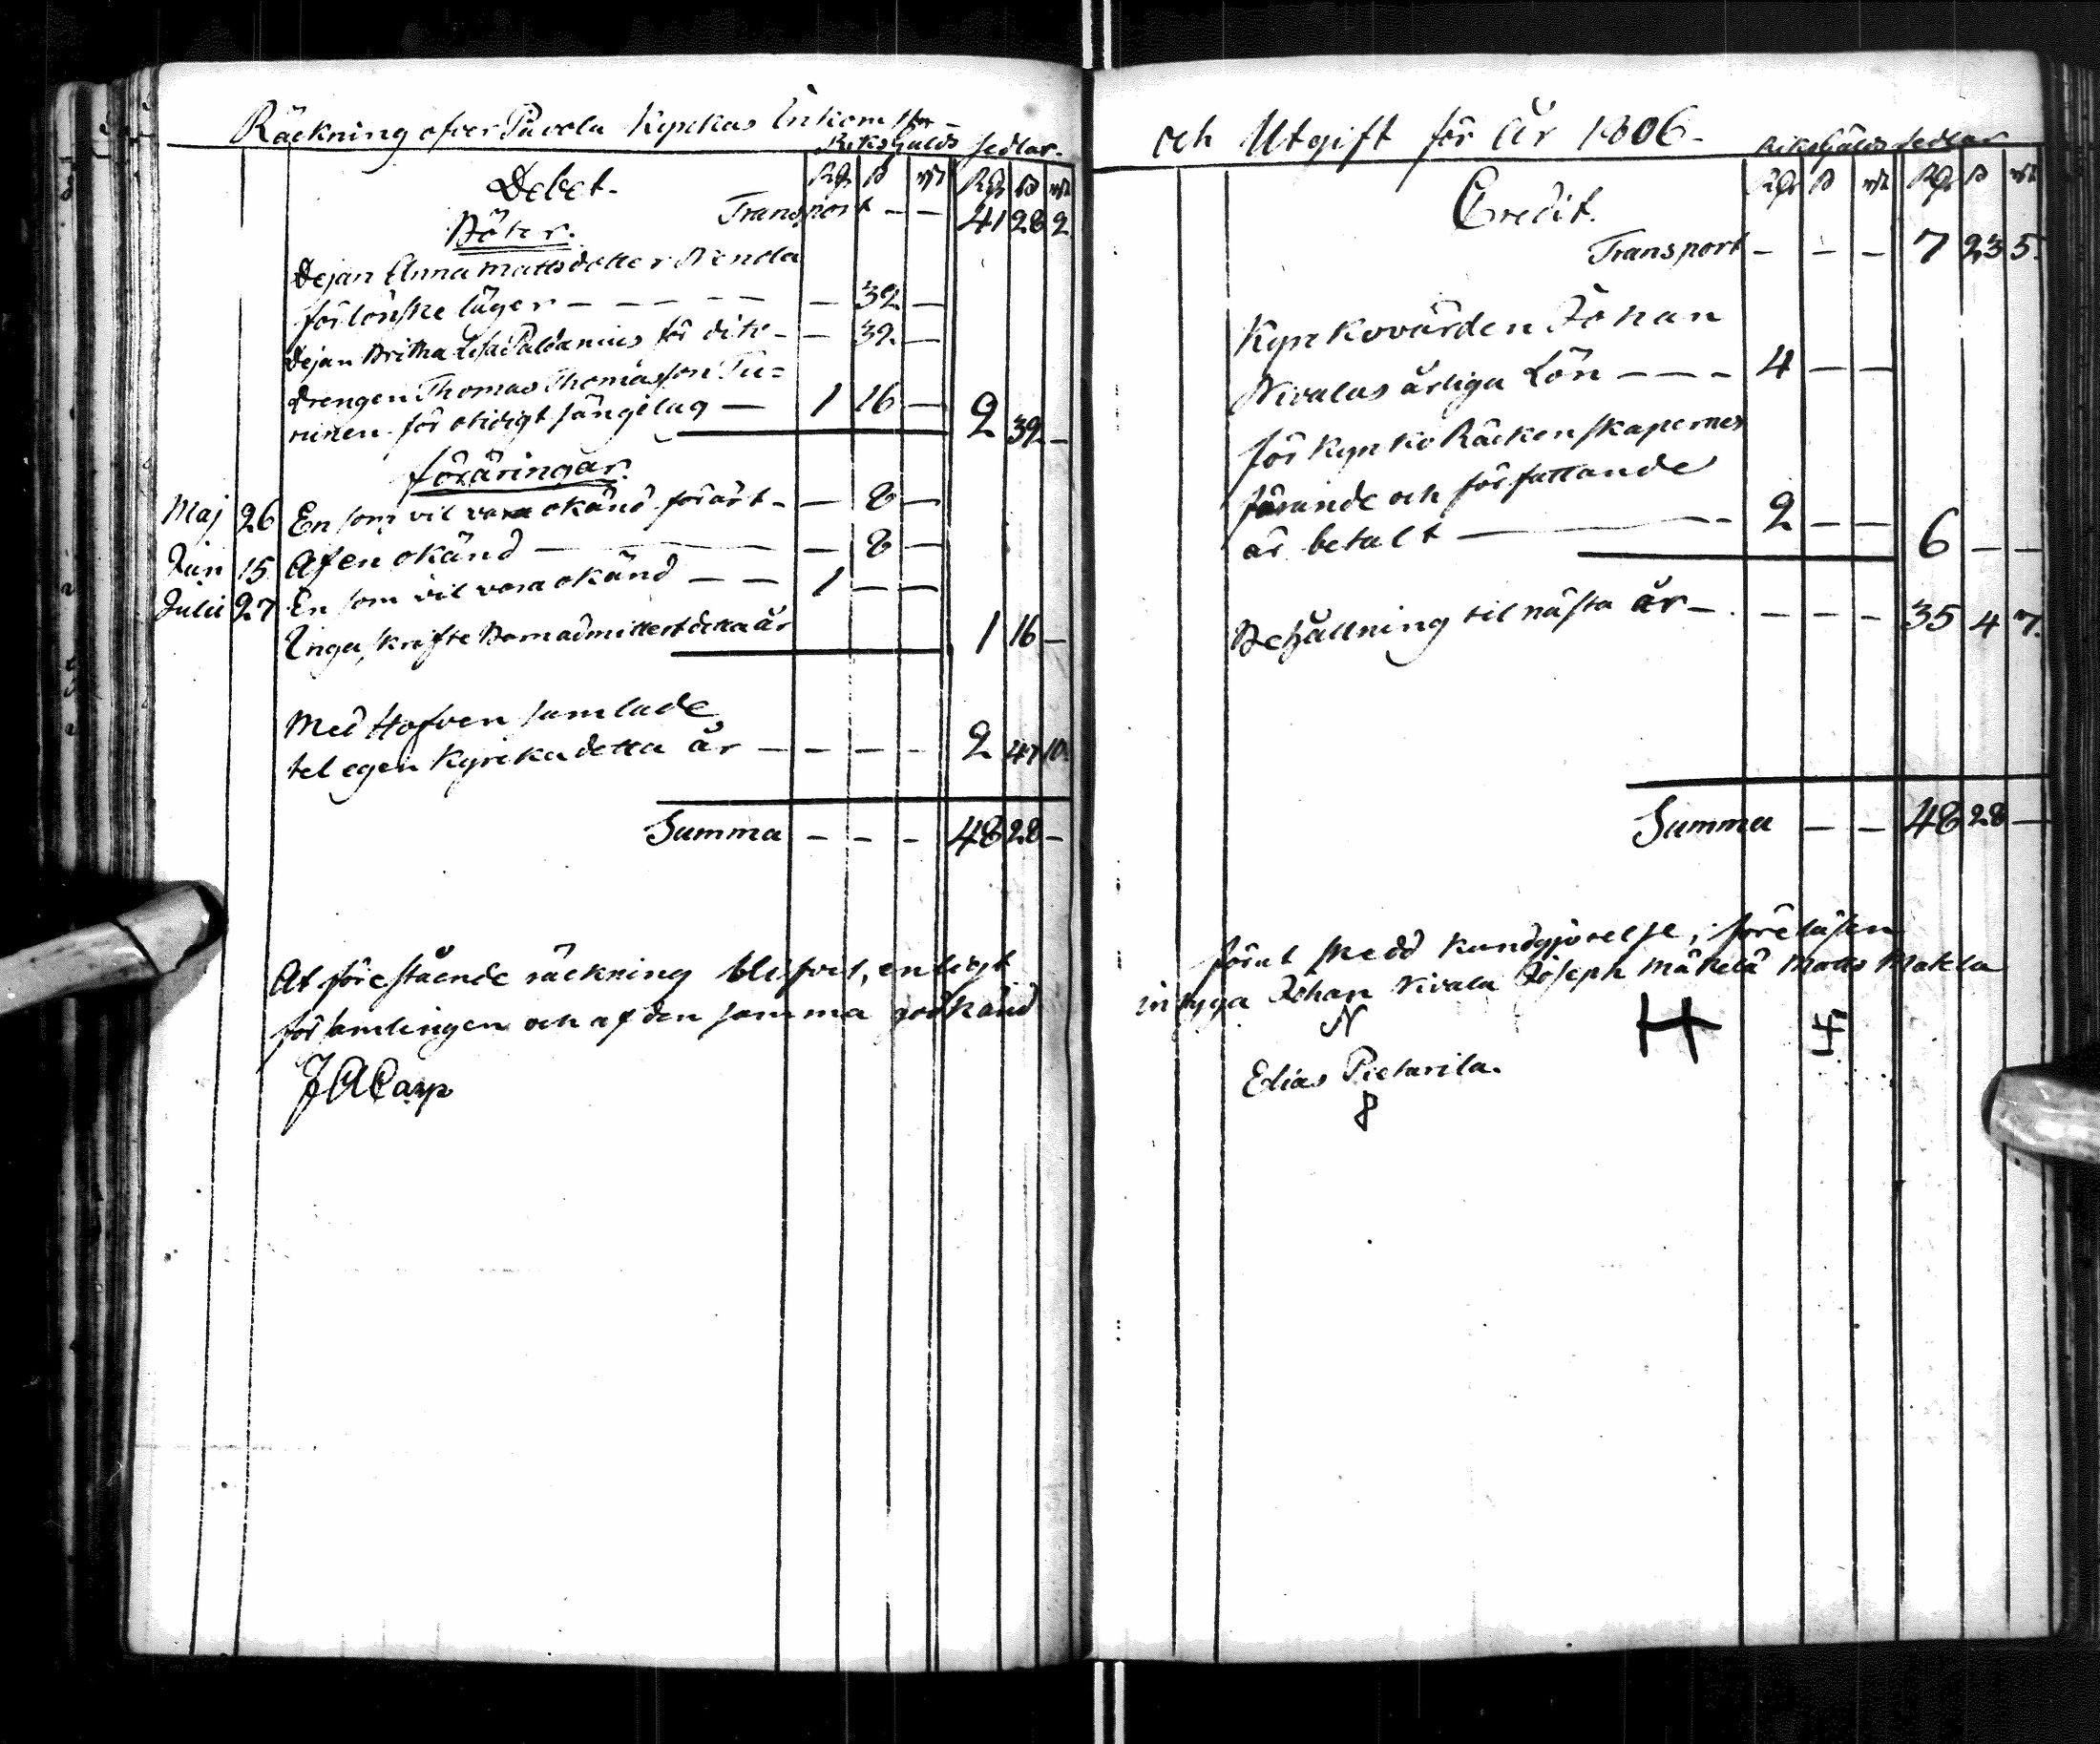 Räckning öfver Pavola Kyrckas Inkomster
Riksgälds Sedlar.
Debet. Rdr ß rst Rdr ß rst
Transport — — 41 28 2
Böter.
Pejan Anna Mattsdotter
för lönske läger — — — — — 32 —
Pejan Britha Lisa Paldanius för dito — — 32 —
Drengen Thomas Thomasson Tu=
runen för otidigt sängelag — 1 16 — 2 32 —
Föräringar.
Maj 26 En som vil vara okänd förärt — — 8 —
Jun 15 Af en okänd — — 8 —
Julii 27 En som vil vara okänd — — 1 — —
Inga skrifte Barn admittert detta år 1 16 —
Med Hofven samlade
til egen Kyrcka detta år — — — — 2 47 10.
Summa — — — 48 28 —
At förestående räckning blifvit, enligt
församlingen och af den samma godkänd
JACarp
och Utgift för År 1806.
Riksgälds Sedlar
Credit. Rdr ß rst Rdr ß rst
Transport — — — 7 23 5.
Kyrkovärden Johan
Nivalas årliga Lön — — — 4 — —
för Kyrko Räckenskapernes
förande och författande
är betalt — — 2 — — 6 — —
Behållning til nästa år — — — — 35 4 7.
Summa — — 48 28 —
förut skedd kundgjörelse, föreläsen
intyga Johan Nivala Joseph Mäkelä Matts Makela
N H
Elias Pietarila.
8